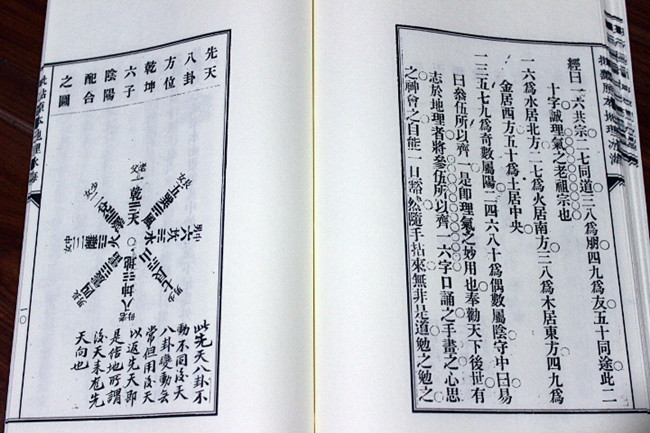 經曰一六共宗二七同道三八爲朋四九爲友五十同途此二
十字誠理氣之老祖宗也
一六爲水居北方二七爲火居南方三八爲木居東方四九爲
金居西方五十爲土居中央
一三五七九爲奇數屬陽二四六八十爲偶數屬陰守中曰易
曰叅伍所以齊一是卽理氣之妙用也奉勸天下後世有
志於地理者將參伍所以齊一六字日誦之手畫之心思
之神會之自能一日豁然隨手拈來無非是道勉之勉之
先天
八卦
方位
乾坤
六子
陰陽
配合
之圖
老父
一乾☰天
五巽☴風
六坎☵水
七艮☶山
八坤☷地
此先天八卦不
動不同後天
八卦變動無
常但用後天
以返先天即
是俗地所謂
後天來有先
天向也
一〇